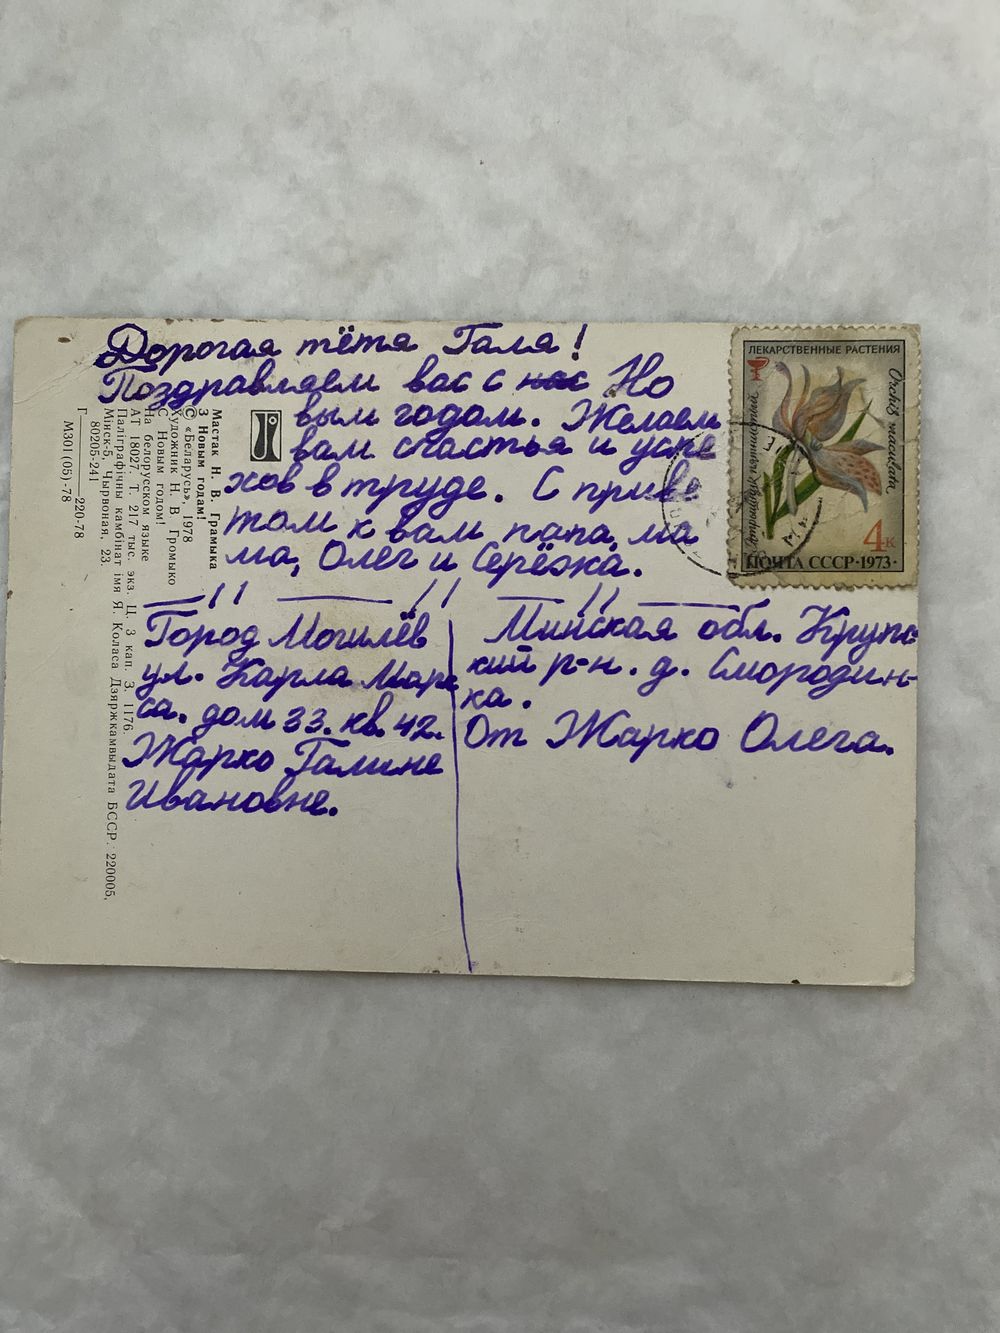 Дорогая тётя Галя!
Поздравляем вас с Но
вым годом. Желаем
вам счастья и успе
хов в труде. С приве
том к вам папа, ма
ма, Олег и Серёжа.
Город Могилёв
ул. Карла Марк
са. дом 33. кв. 42.
Жарко Галине
Ивановне.
Минская обл. Круп-
кий р-н. д. Смородин-
ка.
От Жарко Олега.
ЛЕКАРСТВЕННЫЕ РАСТЕНИЯ
Orchis maculata
4к
ПОЧТА СССР·1973·
Мастак Н. В. Грамыка
З Новым годам!
© «Беларусь», 1978
Художник Н. В. Громыко
С Новым годом!
На белорусском языке
АТ 18027. Т. 217 тыс. экз. Ц. 3 кап. З. 1176
Паліграфічны камбінат імя Я. Коласа Дзяржкамвыдата БССР. 220005,
Мінск-5, Чырвоная, 23.
80205-241
Г 220-78
М301(05)-78